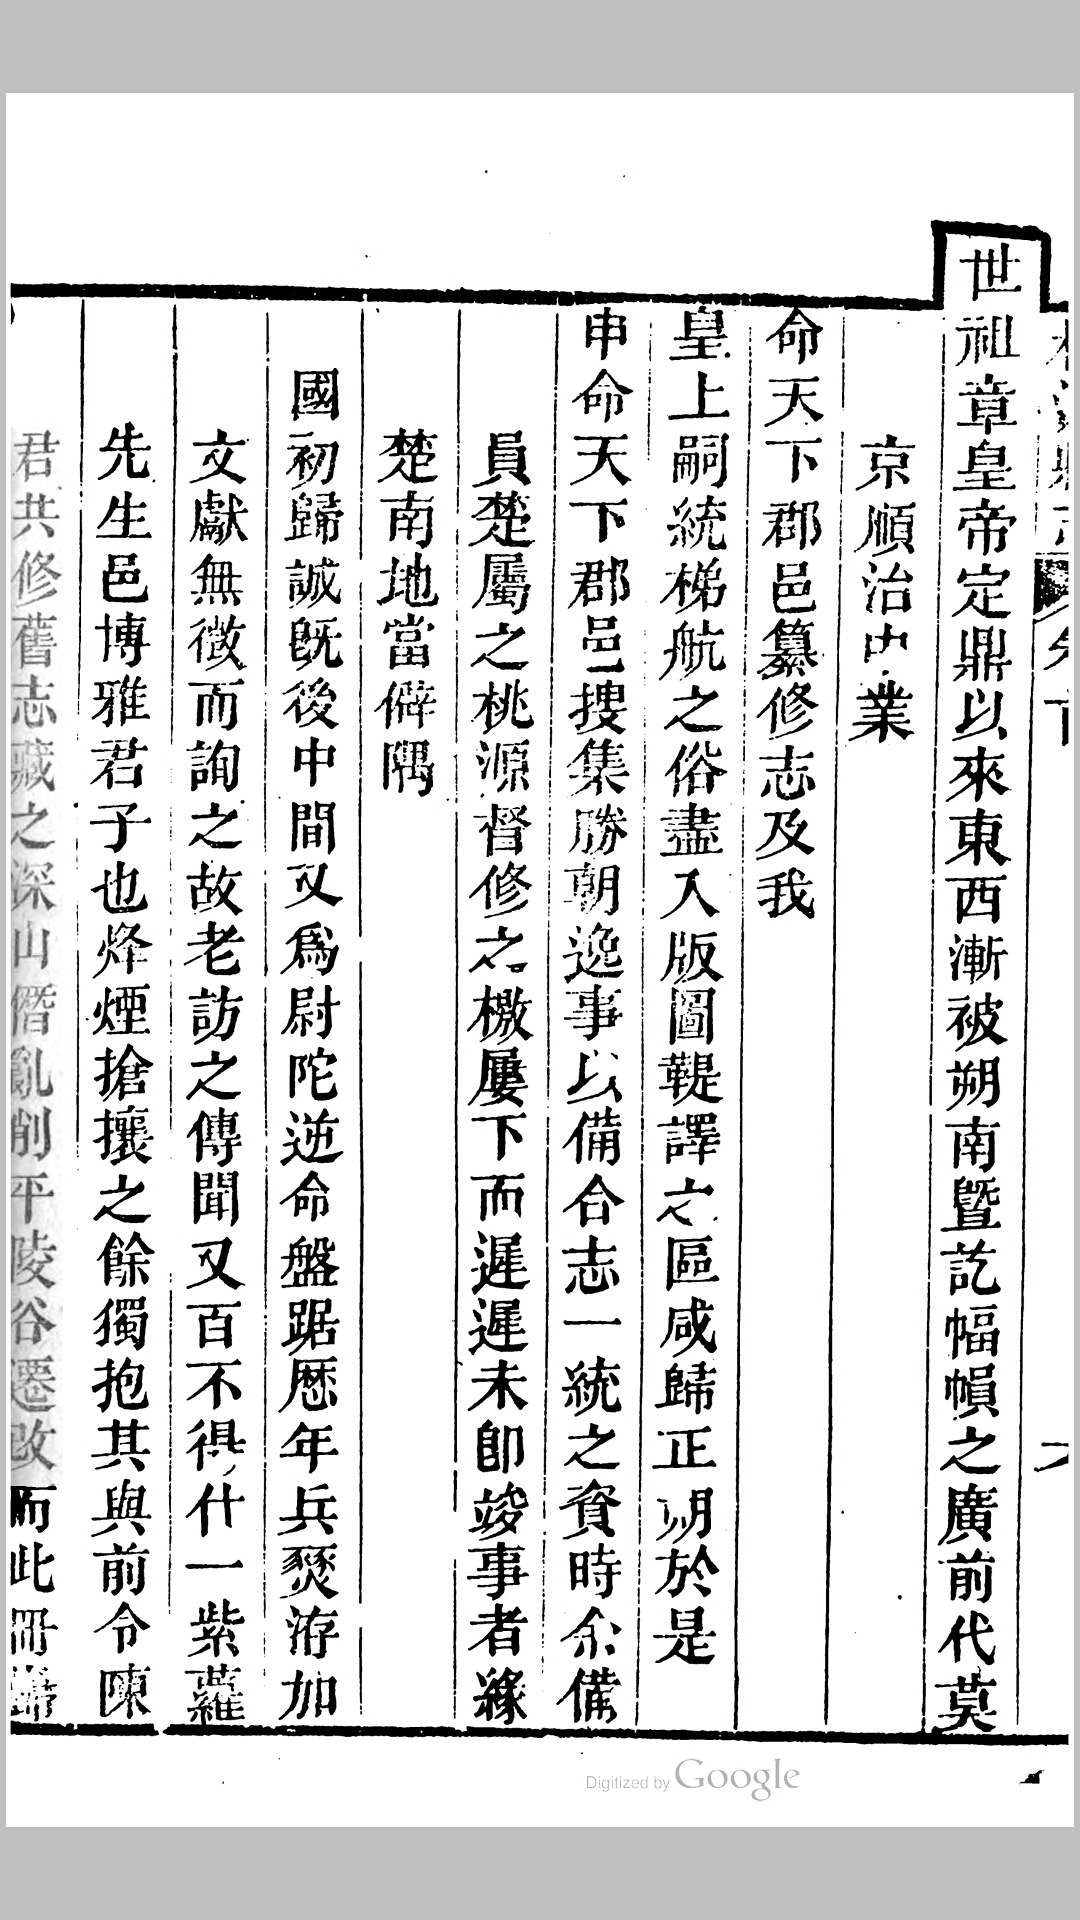 世祖章皇帝定鼎以來東西漸被朔南曁訖幅幀之廣前代莫
京順治中業
命天下郡邑纂修志及我
皇上嗣統梯航之俗盡入版圖鞮譯之區咸歸正朔於是
申命天下郡邑搜集勝朝逸事以備合志一統之資時余備
員楚屬之桃源督修之檄屢下而遲遲未卽竣事者緣
楚南地當僻隅
國初歸誠旣後中間又爲尉陀逆命盤踞歷年兵燹洊加
文獻無徴而詢之故老訪之傳聞又百不得什一紫蘿
先生邑博雅君子也烽煙搶攘之餘獨抱其與前令陳
君共修舊志藏之深山僭亂削平陵谷遷改而此冊歸
Digitized by Google